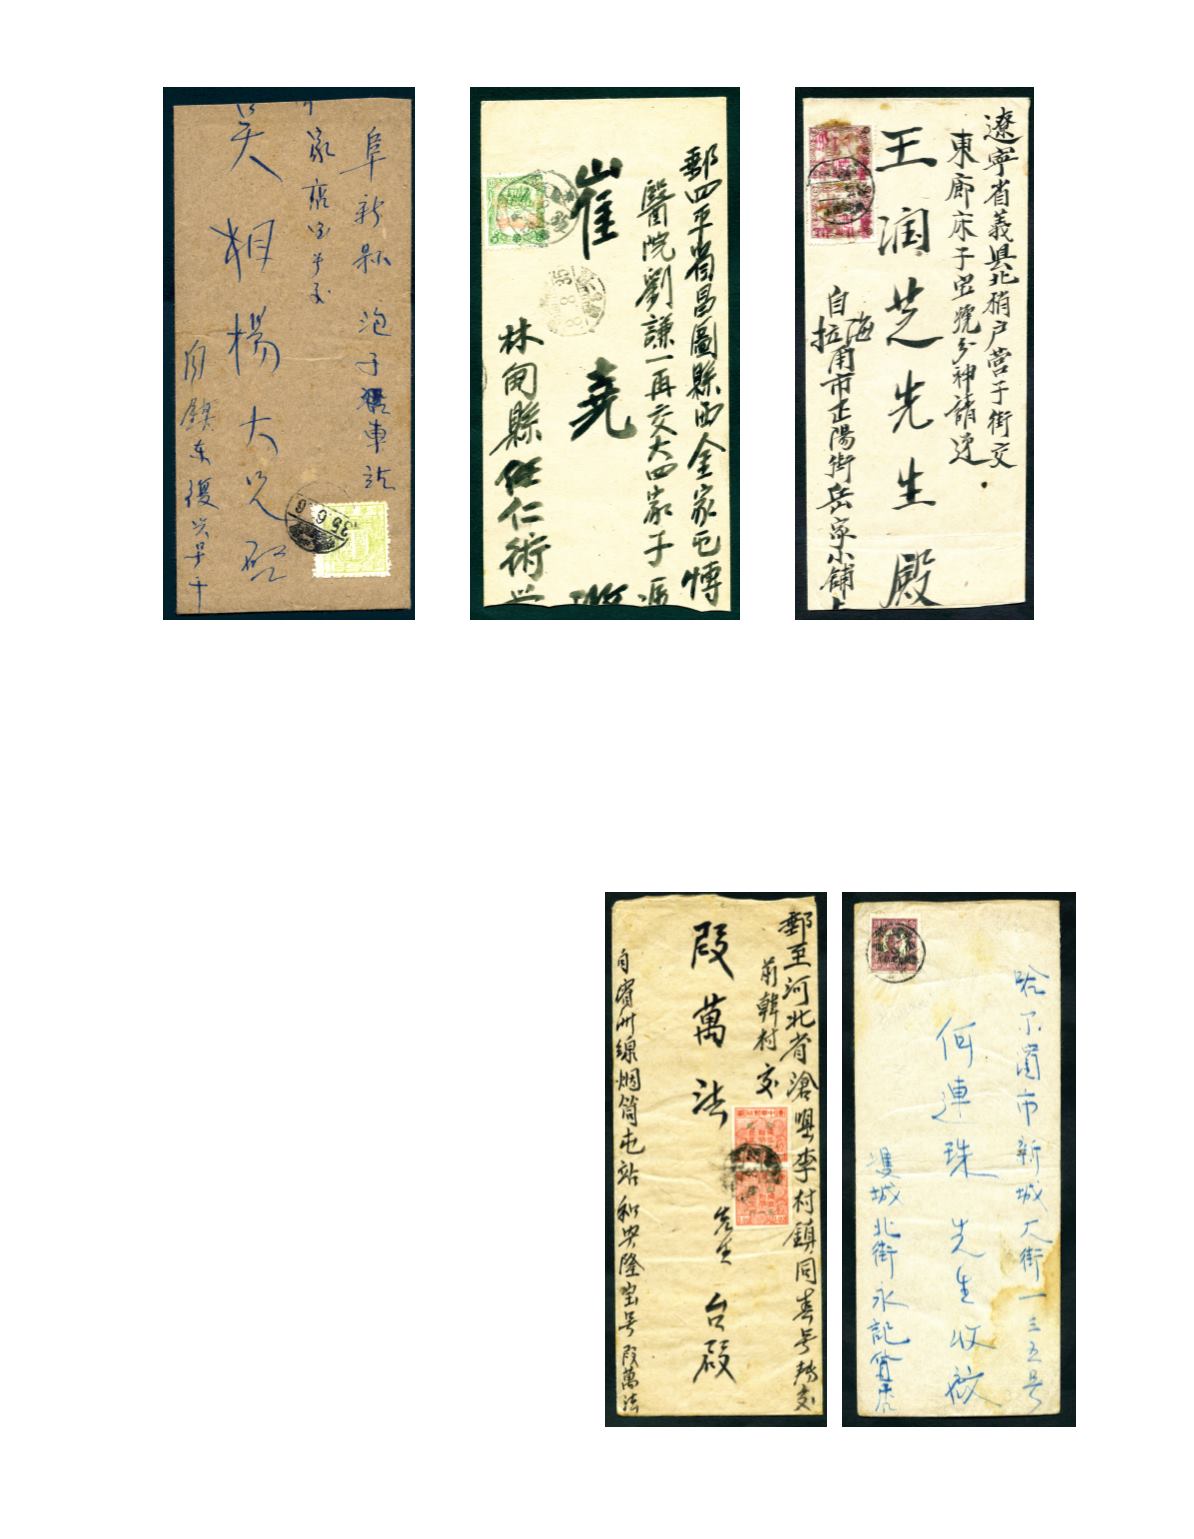 阜新縣泡子車站
吳相楊大兄啓
自鎮东復兴号

郵四平省昌圖縣西金家屯博
醫院劉謙一再交大四家子
崔堯
林甸縣任仁術

遼寧省義縣北稍戶營子街交
東廊床子
王润芝先生殿
自海拉甫市正陽街岳家小舖

郵至河北省滄县李村鎮同春号轉交
前韓村交
段萬法先生台啟
自賓州線烟筒屯站和兴隆宝号段萬法

哈尔濱市新城大街一三五号
何連珠先生收啟
雙城北街永記貨店